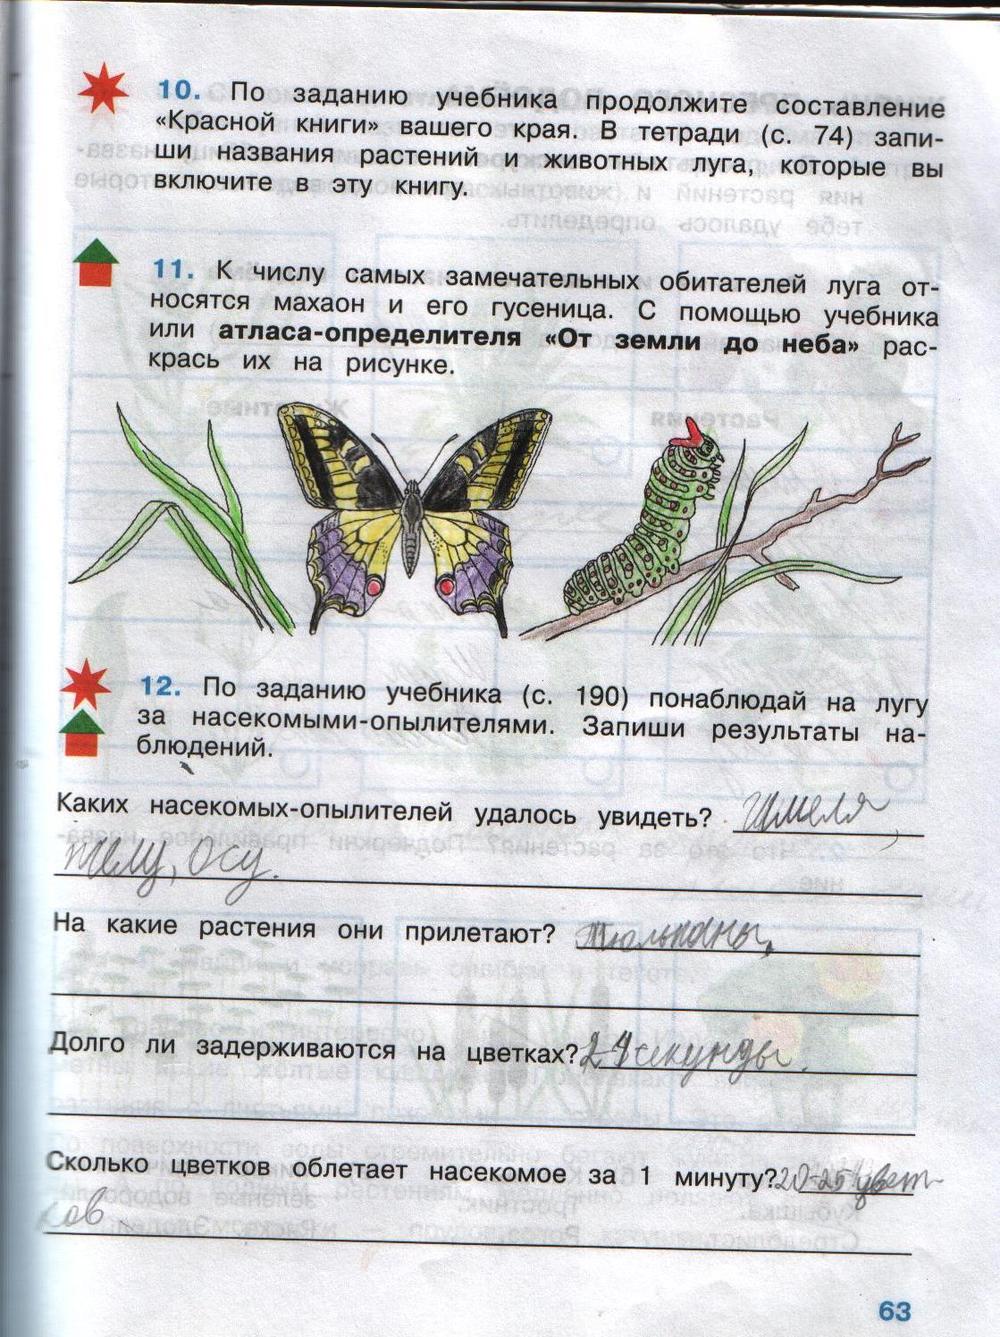 10. По заданию учебника продолжите составление
«Красной книги» вашего края. В тетради (с. 74) запи-
ши названия растений и животных луга, которые вы
включите в эту книгу.
11. К числу самых замечательных обитателей луга от-
носятся махаон и его гусеница. С помощью учебника
или атласа-определителя «От земли до неба» рас-
крась их на рисунке.
12. По заданию учебника (с. 190) понаблюдай на лугу
за насекомыми-опылителями. Запиши результаты на-
блюдений.
Каких насекомых-опылителей удалось увидеть? Шмеля,
пчелу, осу.
На какие растения они прилетают? Тюльпаны,
Долго ли задерживаются на цветках? 2-4 секунды.
Сколько цветков облетает насекомое за 1 минуту? 20-25 цвет-
ков
63